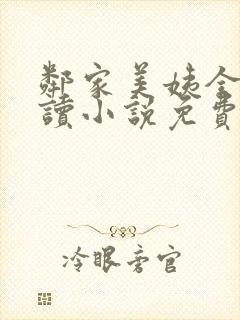 鄰家美姨全
讀小說免費
冷眼旁官